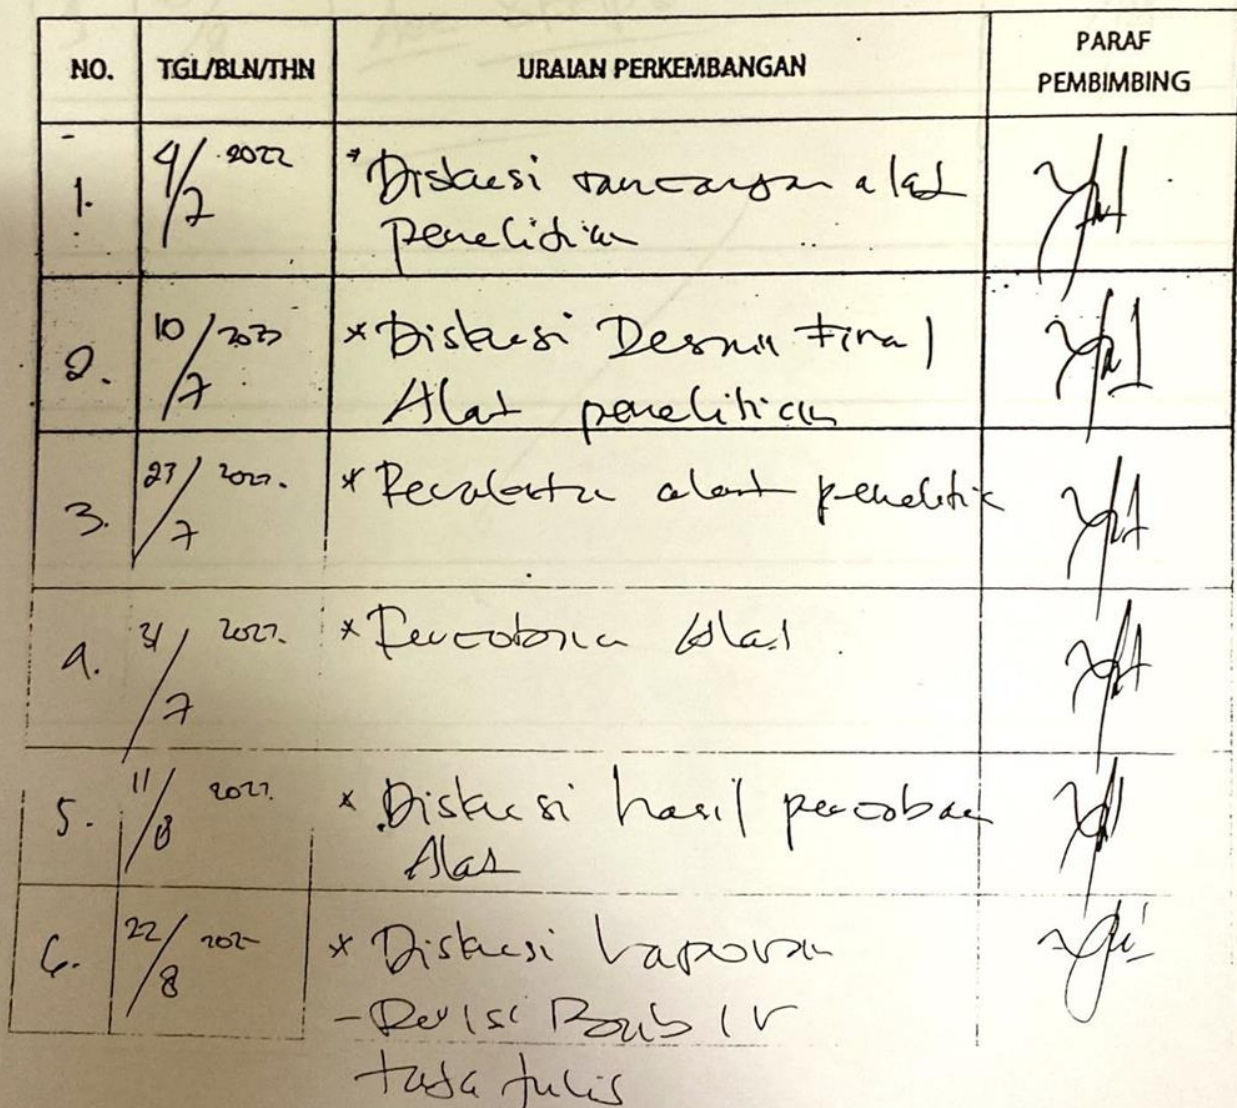 NO. TGL/BLN/THN URAIAN PERKEMBANGAN PARAF PEMBIMBING
1. 4/7 2022 * Diskusi rancangan alat
penelitian
2. 10/7 2022 * Diskusi Desain Final
Alat penelitian
3. 23/7 2022. * alat
4. 31/7 2022. * Percobaan Alat.
5. 11/8 2022. * Diskusi hasil percobaan
Alat
6. 22/8 202 * Diskusi Laporan
- Revisi Bab IV
tata tulis